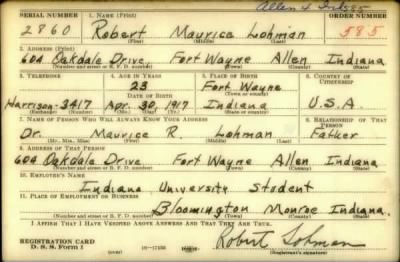 Allen 4
SERIAL NUMBER 1. NAME (Print) ORDER NUMBER
2860 Robert Maurice Lohman 585
(First) (Middle) (Last)
2. ADDRESS (Print)
604 Oakdale Drive Fort Wayne Allen Indiana
(Number and street or R. F. D. number) (Town) (County) (State)
3. TELEPHONE 4. AGE IN YEARS 5. PLACE OF BIRTH 6. COUNTRY OF CITIZENSHIP
23 Fort Wayne
DATE OF BIRTH (Town or county)
Harrison-3417 Apr. 30, 1917 Indiana U.S.A.
(Exchange) (Number) (Mo.) (Day) (Yr.) (State or country)
7. NAME OF PERSON WHO WILL ALWAYS KNOW YOUR ADDRESS 8. RELATIONSHIP OF THAT PERSON
Dr. Maurice R. Lohman Father
(Mr., Mrs., Miss) (First) (Middle) (Last)
9. ADDRESS OF THAT PERSON
604 Oakdale Drive Fort Wayne Allen Indiana
(Number and street or R. F. D. number) (Town) (County) (State)
10. EMPLOYER'S NAME
Indiana University Student
11. PLACE OF EMPLOYMENT OR BUSINESS
Bloomington Monroe Indiana.
(Number and street or R. F. D. number) (Town) (County) (State)
I AFFIRM THAT I HAVE VERIFIED ABOVE ANSWERS AND THAT THEY ARE TRUE.
REGISTRATION CARD
D. S. S. Form 1 (over) 16—17105 Robert Lohman
(Registrant's signature)